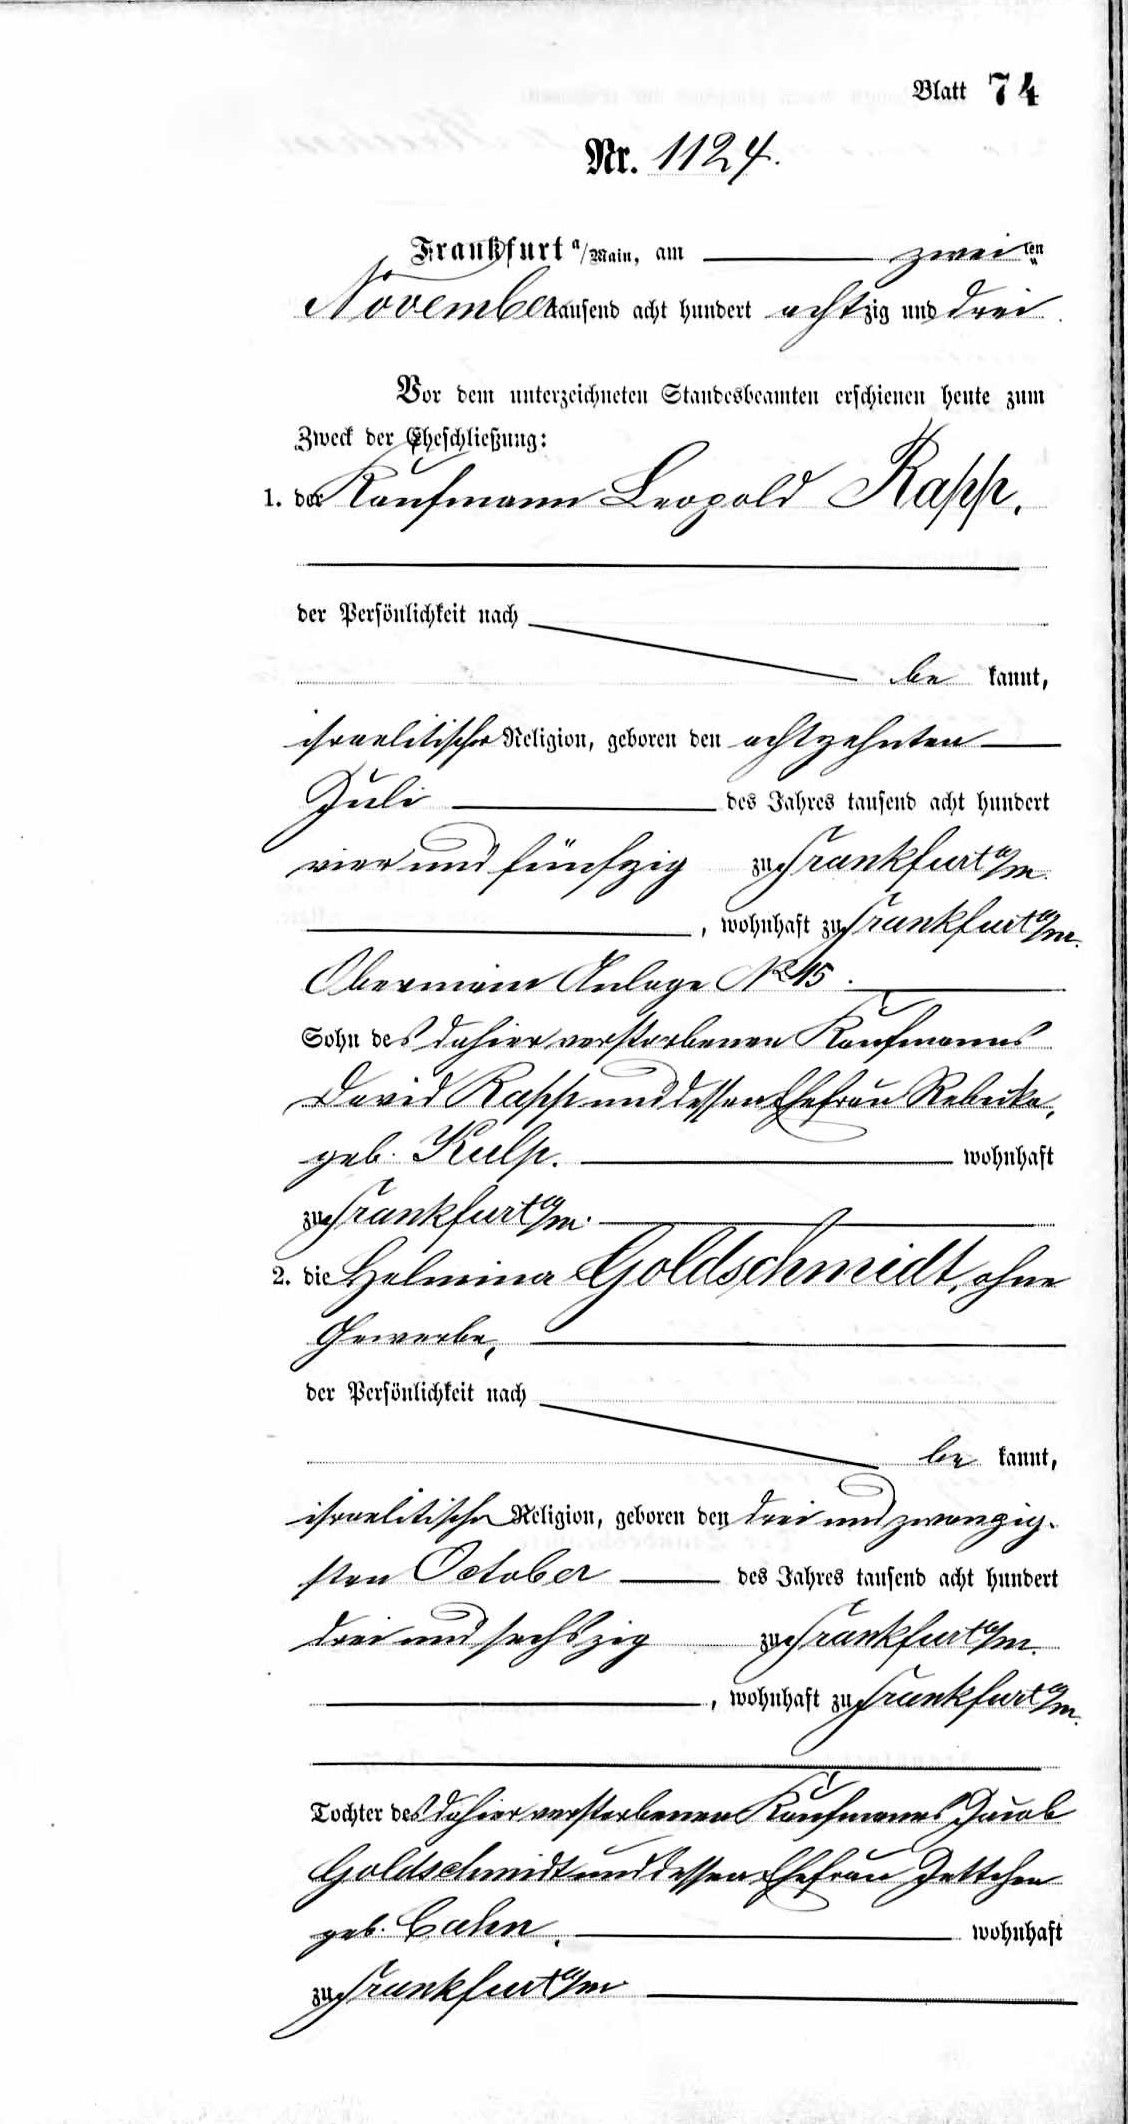 Blatt 74
Nr. 1124.
Frankfurt a/Main, am zweiten
November tausend acht hundert achtzig und drei
Vor dem unterzeichneten Standesbeamten erschienen heute zum
Zweck der Eheschließung:
1. der Kaufmann Leopold Rapp,
der Persönlichkeit nach
be kannt,
israelitischer Religion, geboren den achtzehnten
Juli des Jahres tausend acht hundert
vier und fünfzig zu Frankfurt a/m.
, wohnhaft zu Frankfurt a/m.
Obermain Anlage No 15.
Sohn des dahier verstorbenen Kaufmanns
David Rapp und dessen Ehefrau Rebecka,
geb. Kulp. wohnhaft
zu Frankfurt a/m.
2. die Helmina Goldschmidt, ohne
Gewerbe,
der Persönlichkeit nach
be kannt,
israelitischer Religion, geboren den drei und zwanzig-
sten October des Jahres tausend acht hundert
drei und sechszig zu Frankfurt a/m.
, wohnhaft zu Frankfurt a/m.
Tochter des dahier verstorbenen Kaufmanns Jacob
Goldschmidt und dessen Ehefrau Jettchen
geb. Cahn. wohnhaft
zu Frankfurt a/m